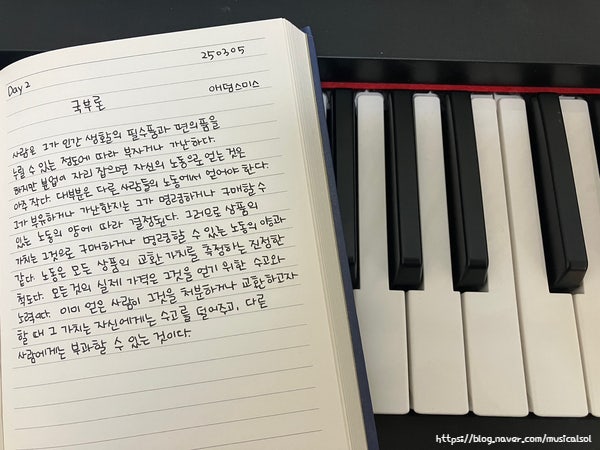 Day 2
250305
국부론
애덤스미스
사람은 그가 인간 생활의 필수품과 편의품을
누릴 수 있는 정도에 따라 부자거나 가난하다.
하지만 분업이 자리 잡으면 자신의 노동으로 얻는 것은
아주 작다. 대부분은 다른 사람들의 노동에서 얻어야 한다.
그가 부유하거나 가난한지는 그가 명령하거나 구매할 수
있는 노동의 양에 따라 결정된다. 그러므로 상품의
가치는 그것으로 구매하거나 명령할 수 있는 노동의 양과
같다. 노동은 모든 상품의 교환 가치를 측정하는 진정한
척도다. 모든것의 실제 가격은 그것을 얻기 위한 수고와
노력이다. 이미 얻은 사람이 그것을 처분하거나 교환하고자
할 때 그 가치는 자신에게는 수고를 덜어주고, 다른
사람에게는 부과할 수 있는 것이다.
https://blog.naver.com/musicalsol